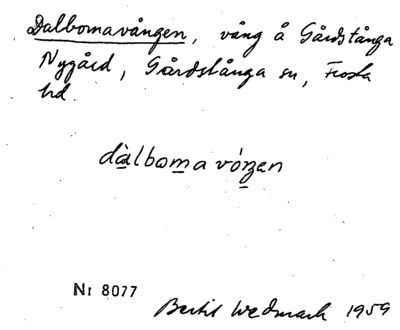 Dalbomavången, vång å Gårdstånga
Nygård, Gårdstånga sn, Frosta
hd.
dàlboma vóŋen
Nr 8077
Bertil Wedmark 1959